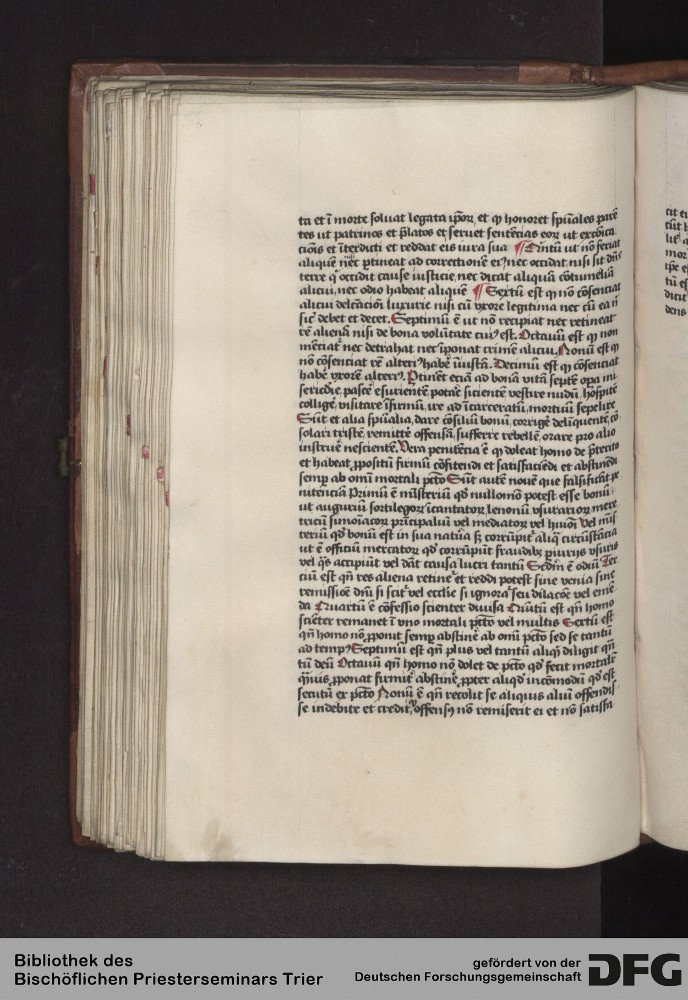 ta et ī morte soluat legata ip̄oꝝ et ꝙ honoret sp̄uales parē
tes ut patrinos et p̄latos et seruet sentētias eoꝝ ut excōīca
cīoīs et īterdicti et reddat eis iura sua ¶ Quintū ut nō feriat
aliquē nec ꝑtineat ad correctionē eiꝰ nec occidat nisi sit dn̄s
terre qͥ occidit cause iusticie, nec dicat aliquā cōtumeliā
alicui, nec odio habeat aliquē ¶ Sextū est ꝙ nō cōsenciat
alicui delcācōī luxurie nisi cū vxore legitima nec cū ea n̄
sicͭ debet et decet. Septimū ē ut nō recipiat nec retineat
rē alienā nisi de bona volūtate cuiꝰ est. Octauū est ꝙ non
mēciatͬ nec detrahat nec īponat crimē alicui. Nonū est ꝙ
nō cōsenciat rē alteriꝰ habē iniustā. Decimū est ꝙ cōsenciat
habē vxorē alteriꝰ. Ptinet eciā ad bonā vitā septē opa mi
sericdie, pascē esurientē potare sicientē vestire nudū, hospitē
colligē, visitare īfirmū, ire ad īcarceratū, mortuū sepelire
Sūt et alia sp̄ualia, dare cōsiliū bonū, corrigē delīquentē, cō
solari tristē, remittē offensā, sufferre rebellē, orare pro alio
instruē nescientē. Vera penitētia ē ꝙ doleat homo de p̄terito
et habeat ꝓpositū firmū cōfitendi et satisfaciēdi et abstinēdi
semꝑ ab omī mortali pctō Sūt autē nouē que falsificāt pe
nitenciā Primū ē mīsteriū qd̄ nullomō potest esse bonū.
ut auguriū sortilegoꝝ īcantatoꝝ, lenoniū vsurarioꝝ mere
tricū simoiacoꝝ prīcipaliū vel mediatoꝝ vel huōī Vel mīs
teriū qd̄ bonū est in sua natura sꝫ corrūpitͬ aliqͣ circūstācia
ut ē officiū mercatoꝝ qd̄ corrūpiūt fraudibꝫ ꝑiuriis vsuris
vel qͥs accipiūt vel dāt causa lucri tantū Scdm̄ ē odiū Ter
ciū est qn̄ res aliena retinetͬ et reddi potest sine venia sine
remissiōe dn̄i si scitͬ vel ecclie si ignoratͬ seu dilacōe vel emē
da Quartū ē cōfessio scienter diuisa Quītū est qn̄ homo
sciēter remanet ī vno mortali pctō vel multis Sextū est
qn̄ homo nō ꝓponit semꝑ abstinē ab omī pctō sed se tantū
ad tempꝰ Septimū est qn̄ plus vel tantū aliqͥd diligit qn̄
tū deū Octauū qn̄ homo nō dolet de pctō qd̄ fecit mortalit̄
qͣuis ꝓponat firmitͬ abstinē, ꝓpter aliqd̄ incōmodū qd̄ est
secutū ex pctō Nonū ē qn̄ recolit se aliquis aliū offendis
se indebite et creditͬ ꝙ offensꝰ nō remiserit ei et nō satisfa
Bibliothek des
Bischöflichen Priesterseminars Trier
gefördert von der
Deutschen Forschungsgemeinschaft
DFG